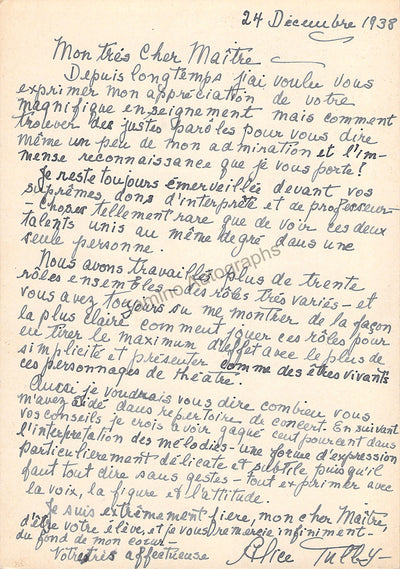 24 Décembre 1938
Mon très Cher Maître
Depuis longtemps j'ai voulu vous
exprimer mon appréciation de votre
magnifique enseignement mais comment
trouver des justes paroles pour vous dire
même un peu de mon admiration et l'im-
mense reconnaissance que je vous porte!
Je reste toujours émerveillée devant vos
suprêmes dons d'interprète et de professeur-
- choses tellement rare que de voir ces deux
talents unis au même degré dans une
seule personne.
Nous avons travaillés plus de trente
rôles ensembles - des rôles très variés - et
vous avez toujours su me montrer de la façon
la plus claire comment jouer ces rôles pour
en tirer le maximum d'effet avec le plus de
simplicité et présenter comme des êtres vivants
ces personnages de théatre.
Aussi je voudrais vous dire combien vous
m'avez aidé dans repertoire de concert. En suivant
vos conseils je crois avoir gagné cent pourcent dans
l'interprétation des mélodies - une forme d'expression
particulierement délicate et subtile puisqu'il
faut tout dire sans gestes - tout exprimer avec
la voix, la figure et l'attitude.
Je suis extrêmement fiere, mon cher Maître,
d'être votre élève, et je vous remercie infiniment -
du fond de mon coeur -
Votre très affectueuse
Alice Tully -
Tamino Autographs